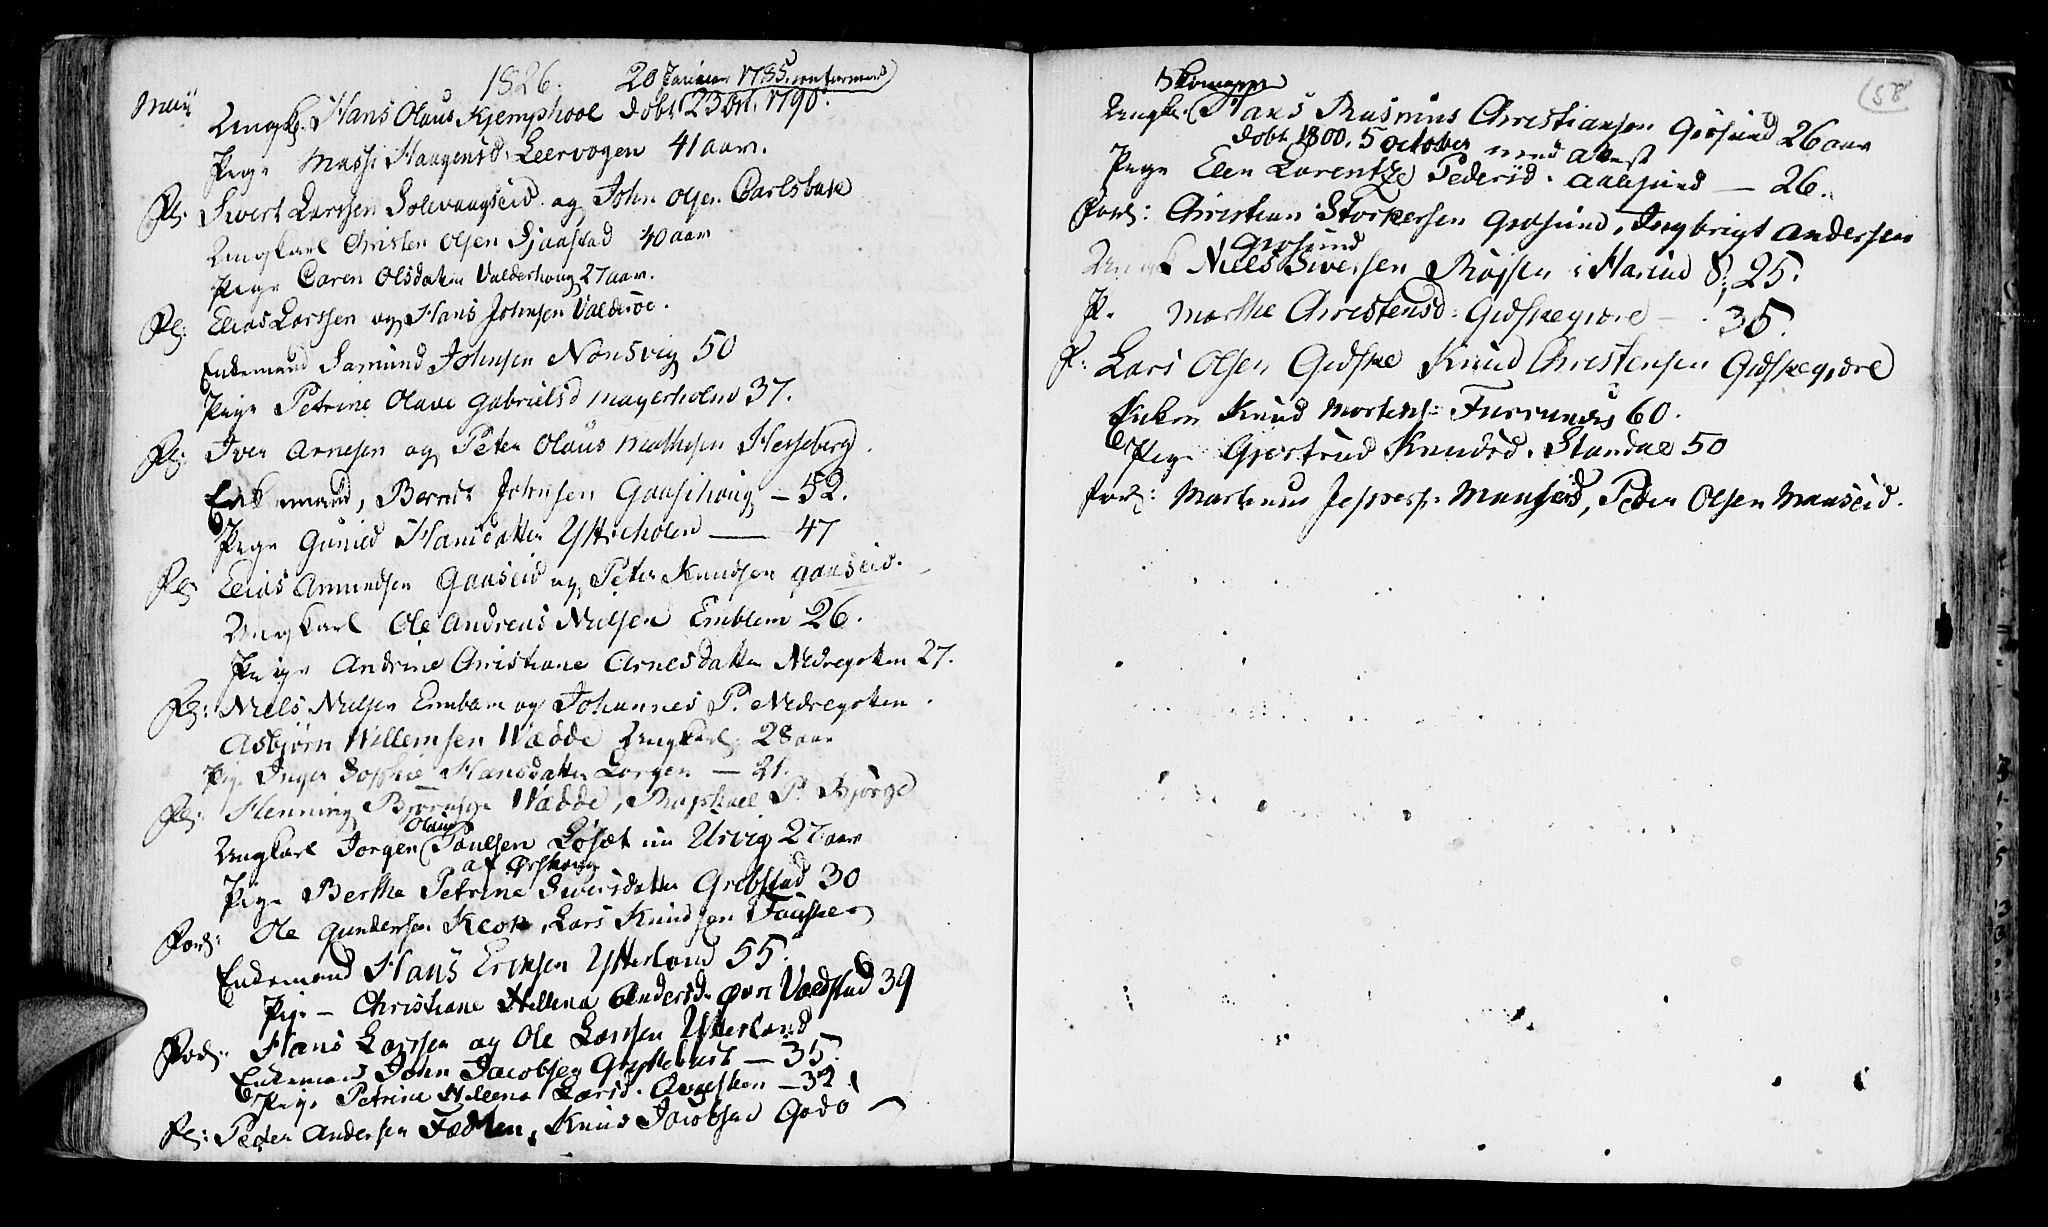 1826. 20 Januar 1785. confirmered
Maii
Ungk. Hans Olaus Kjemphool döbt 23 1790.
Pige Massi Haagensd. Leervogen 41 aar.
Fl: Sivert Larssen Solevaagseid og John Olsen Carlsbak
Ungkarl Christen Olsen Sjaastad 40 aar
Pige Caren Olsdatter Valderhoug 27 aar.
Fl: Elias Larssen og Hans Johnsen Valderöe.
Enkemand Samund Johnsen Nonsvig 50
Pige Petrine Olave Gabrielsd Magerholm 37.
Fl: Iver Arnesen og Peter Olaus Mathisen Hesseberg.
Enkemand, Berndt Johnsen Gaasehoug — 52.
Pige Gunild Hansdatter Yttreholen — 47
Fl: Elias Amundsen Gaaseid og Peter Knudsen Gaaseid.
Ungkarl Ole Andreas Nielsen Emblem 26.
Pige Andrine Christiane Arnesdatter Nedregotten 27.
Fl: Niels Nielsen Emblem og Johannes P. Nedregotten.
Asbjörn Willemsen Wadde Ungkarl. 28 aar
Pige Inger Sophie Hansdatter Lorgen — 21.
Fl: Henning Björnsen Wadde, Raphael P. Björge
Olaus
Ungkarl Jörgen Poulsen Løset nu Urvig 27 aar
af Ørskoug
Pige Berthe Petrine Siversdatter Grebstad 30
Forl: Ole Gundersen Klok, Lars Knudsen Fauske
Enkemand Hans Erichsen Ytterland 55.
Pige — Christiane Hellena Andersd. Øvre Vaedstad 39
Forl: Hans Larssen og Ole Larssen Ytterland
Enkemand John Jacobsen Gryttebust — 35.
Pige Petrine Hellena Larsd. — 32
Fl: Peder Andersen, Knud Jacobsen Godö

58
Ungk. Hans Rasmus Christiansen Giösund 26 aar
döbt 1800. 5 October med Attest
Pige Elen Larentze Pedersd. Aalesund — 26.
Forl: Christian Storkersen Giösund, Ingbrigt Andersen
Giösund
Ungk Niels Siversen Röjsen i Harind S: 25.
P. Marthe Christensd: Gidskegiære — 35.
F: Lars Olsen Gidske Knud Christensen Gidskegiære
Enkem Knud Mortens: Furrunæs 60.
Pige Gjertrud Knudsd. Standal 50
Forl: Martinus Jespers: Mauseid, Peder Olsen Mauseid.